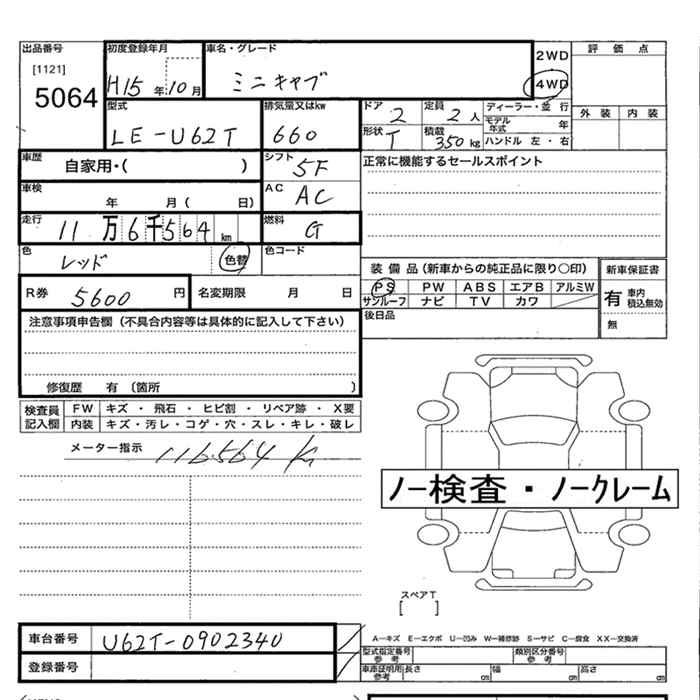 出品番号 初度登録年月 車名・グレード 2WD 評価点
[1121] 5064 H15年10月 ミニキャブ 4WD 外装 内装
型式 排気量又はkw ドア 定員 ディーラー・並行
LE-U62T 660 2 2人 モデル年式 年
形状 T 積載 350kg ハンドル 左・右
車歴 自家用・( ) シフト 5F 正常に機能するセールスポイント
車検 年 月( 日) AC AC
走行 11万6千564km 燃料 G
色 レッド 色替 色コード
装備品(新車からの純正品に限り○印) 新車保証書
R券 5600円 名変期限 月 日 PS PW ABS エアB アルミW 有 車内積込無効
サンルーフ ナビ TV カワ
注意事項申告欄(不具合内容等は具体的に記入して下さい) 後日品 無
修復歴 有 (箇所 )
検査員記入欄 FW キズ・飛石・ヒビ割・リペア跡・X要
内装 キズ・汚レ・コゲ・穴・スレ・キレ・破レ
メーター指示 116564 Km
ノー検査・ノークレーム
スペアT
[ ]
車台番号 U62T-0902340
A—キズ E—エクボ U—凹み W—補修跡 S—サビ C—腐食 XX—交換済
登録番号 型式指定番号参考 類別区分番号参考
車庫証明用参考 長さ cm 幅 cm 高さ cm